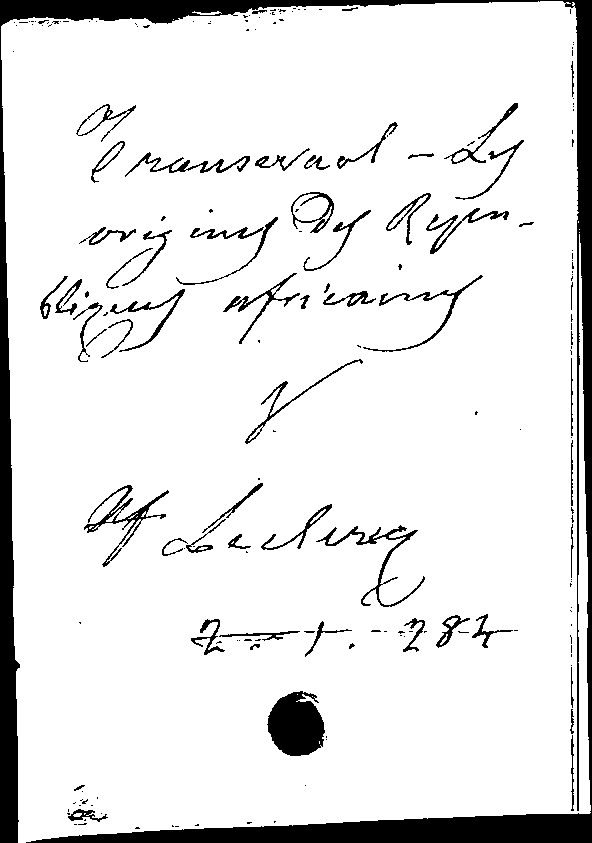 Transwaal - Les
origines Des Repu-
bliques africaines
V
Af Leclercq
2 - 1. 284